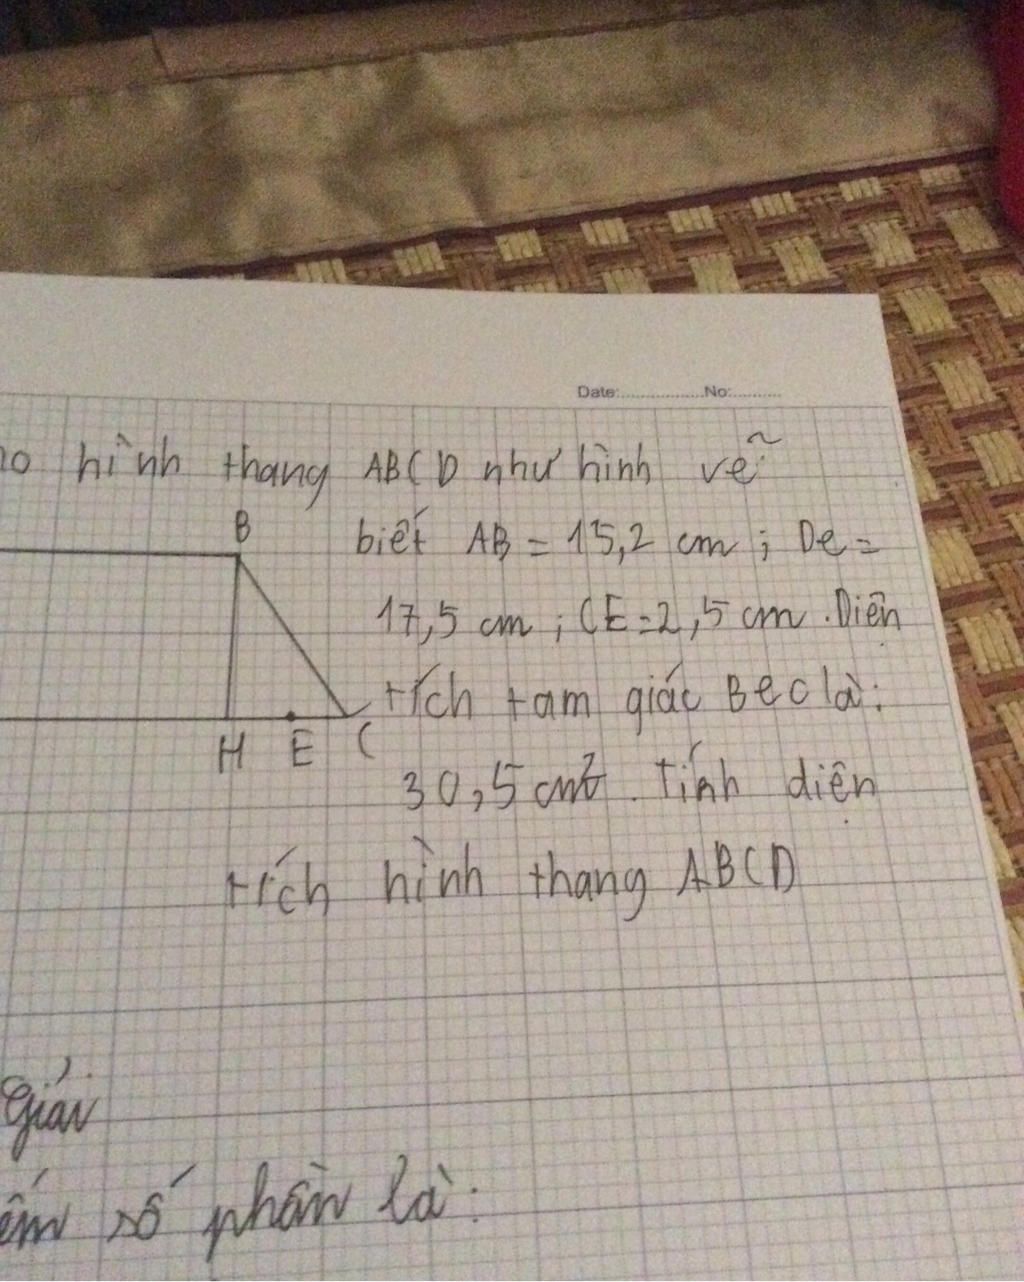 Date:..................No:...........
ho hình thang ABCD như hình vẽ
B
biết AB = 15,2 cm ; De =
17,5 cm ; CE = 2,5 cm . Diện
tích tam giác Bec là:
H E C
30,5 cm². Tính diện
tích hình thang ABCD
giải
số phần là: